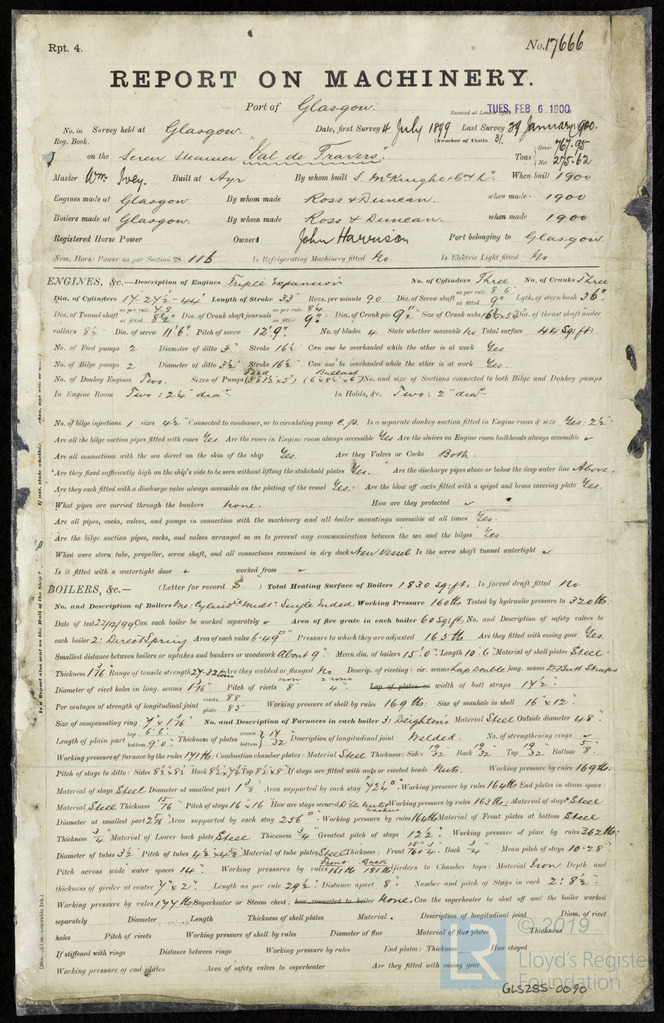 Rpt. 4.
No. 17666
REPORT ON MACHINERY.
Port of Glasgow.
TUES. FEB 6 1900
No. in Survey held at Glasgow. Date, first Survey 4 July 1899 Last Survey 29 January 1900.
Reg. Book. (Number of Visits 31.
on the Screw Steamer "Val de Travers" Tons Gross 767.95 Net 275.62
Master Wm. Ivey. Built at Ayr By whom built S. McKnight & Co Ld. When built 1900
Engines made at Glasgow By whom made Ross & Duncan. when made 1900
Boilers made at Glasgow. By whom made Ross & Duncan. when made 1900
Registered Horse Power Owners John Harrison Port belonging to Glasgow.
Nom. Horse Power as per Section 28 116 Is Refrigerating Machinery fitted No. Is Electric Light fitted No.
ENGINES, &c.—Description of Engines Triple Expansion No. of Cylinders Three No. of Cranks Three
Dia. of Cylinders 17 - 27½ - 44" Length of Stroke 33" Revs. per minute 90 Dia. of Screw shaft as per rule 8.6 as fitted 9" Lgth. of stern bush 36"
Dia. of Tunnel shaft as per rule 7.8 as fitted Dia. of Crank shaft journals as per rule as fitted 9" Dia. of Crank pin 9" Size of Crank webs Dia. of thrust shaft under
collars 8½ Dia. of screw 11'6" Pitch of screw 12'9" No. of blades 4 State whether moveable No Total surface 44 Sq ft
No. of Feed pumps 2 Diameter of ditto 3" Stroke 16½ Can one be overhauled while the other is at work Yes
No. of Bilge pumps 2 Diameter of ditto 3½ Stroke 16½ Can one be overhauled while the other is at work Yes
No. of Donkey Engines Two. Sizes of Pumps Feed Ballast No. and size of Suctions connected to both Bilge and Donkey pumps
In Engine Room Two: 2¼" dia. In Holds, &c. Two: 2" dia.
No. of bilge injections 1 sizes 4½" Connected to condenser, or to circulating pump C.P. Is a separate donkey suction fitted in Engine room & size Yes: 2½"
Are all the bilge suction pipes fitted with roses Yes Are the roses in Engine room always accessible Yes Are the sluices on Engine room bulkheads always accessible
Are all connections with the sea direct on the skin of the ship Yes. Are they Valves or Cocks Both.
Are they fixed sufficiently high on the ship's side to be seen without lifting the stokehold plates Yes. Are the discharge pipes above or below the deep water line Above.
Are they each fitted with a discharge valve always accessible on the plating of the vessel Yes. Are the blow off cocks fitted with a spigot and brass covering plate Yes.
What pipes are carried through the bunkers None. How are they protected
Are all pipes, cocks, valves, and pumps in connection with the machinery and all boiler mountings accessible at all times Yes.
Are the bilge suction pipes, cocks, and valves arranged so as to prevent any communication between the sea and the bilges Yes.
When were stern tube, propeller, screw shaft, and all connections examined in dry dock New Vessel Is the screw shaft tunnel watertight
Is it fitted with a watertight door worked from
BOILERS, &c.— (Letter for record S.) Total Heating Surface of Boilers 1830 sq. ft. Is forced draft fitted No.
No. and Description of Boilers One: Cylindl. Multr. Single Ended Working Pressure 160 lb Tested by hydraulic pressure to 320 lb
Date of test 22/12/99 Can each boiler be worked separately Area of fire grate in each boiler 60 Sq. ft. No. and Description of safety valves to
each boiler 2: Direct Spring Area of each valve 6.49" Pressure to which they are adjusted 165 lb Are they fitted with easing gear Yes.
Smallest distance between boilers or uptakes and bunkers or woodwork About 9" Mean dia. of boilers 15'0" Length 10'6" Material of shell plates Steel
Thickness Range of tensile strength 27-32 tons Are they welded or flanged No Descrip. of riveting: cir. seams Lap Double long. seams D Butt Straps
Diameter of rivet holes in long. seams Pitch of rivets 8 4" Lap of plates or width of butt straps 17½"
Per centages of strength of longitudinal joint rivets 88 plate 85 Working pressure of shell by rules 169 lb Size of manhole in shell 16" x 12"
Size of compensating ring No. and Description of Furnaces in each boiler 3: Deighton's Material Steel Outside diameter 48"
Length of plain part top 6.6" bottom 9.0" Thickness of plates crown bottom 17/32 Description of longitudinal joint Welded. No. of strengthening rings
Working pressure of furnace by the rules 171 lb Combustion chamber plates: Material Steel Thickness: Sides 19/32 Back 19/32 Top 19/32 Bottom
Pitch of stays to ditto: Sides Back Top If stays are fitted with nuts or riveted heads Nuts. Working pressure by rules 169 lb
Material of stays Steel Diameter at smallest part Area supported by each stay Working pressure by rules 164 lb End plates in steam space:
Material Steel Thickness 15/16 Pitch of stays 16 x 16 How are stays secured D Nuts Washers Working pressure by rules 163 lb Material of stays Steel
Diameter at smallest part Area supported by each stay 256" Working pressure by rules 164 lb Material of Front plates at bottom Steel
Thickness ¾" Material of Lower back plate Steel Thickness ¾" Greatest pitch of stays 12½" Working pressure of plate by rules 362 lb
Diameter of tubes 3½" Pitch of tubes Material of tube plates Steel Thickness: Front Back ¾" Mean pitch of stays 10.28"
Pitch across wide water spaces 14" Working pressures by rules Front 161 lb Back 181 lb Girders to Chamber tops: Material Iron Depth and
thickness of girder at centre 7" x 2" Length as per rule 29½" Distance apart 8" Number and pitch of Stays in each 2: 8½"
Working pressure by rules 177 lb Superheater or Steam chest; how connected to boiler None. Can the superheater be shut off and the boiler worked
separately Diameter Length Thickness of shell plates Material Description of longitudinal joint Diam. of rivet
holes Pitch of rivets Working pressure of shell by rules Diameter of flue Material of flue plates Thickness
If stiffened with rings Distance between rings Working pressure by rules End plates: Thickness How stayed
Working pressure of end plates Area of safety valves to superheater Are they fitted with easing gear
© 2019
LR
Lloyd's Register
Foundation
GLS285-0090